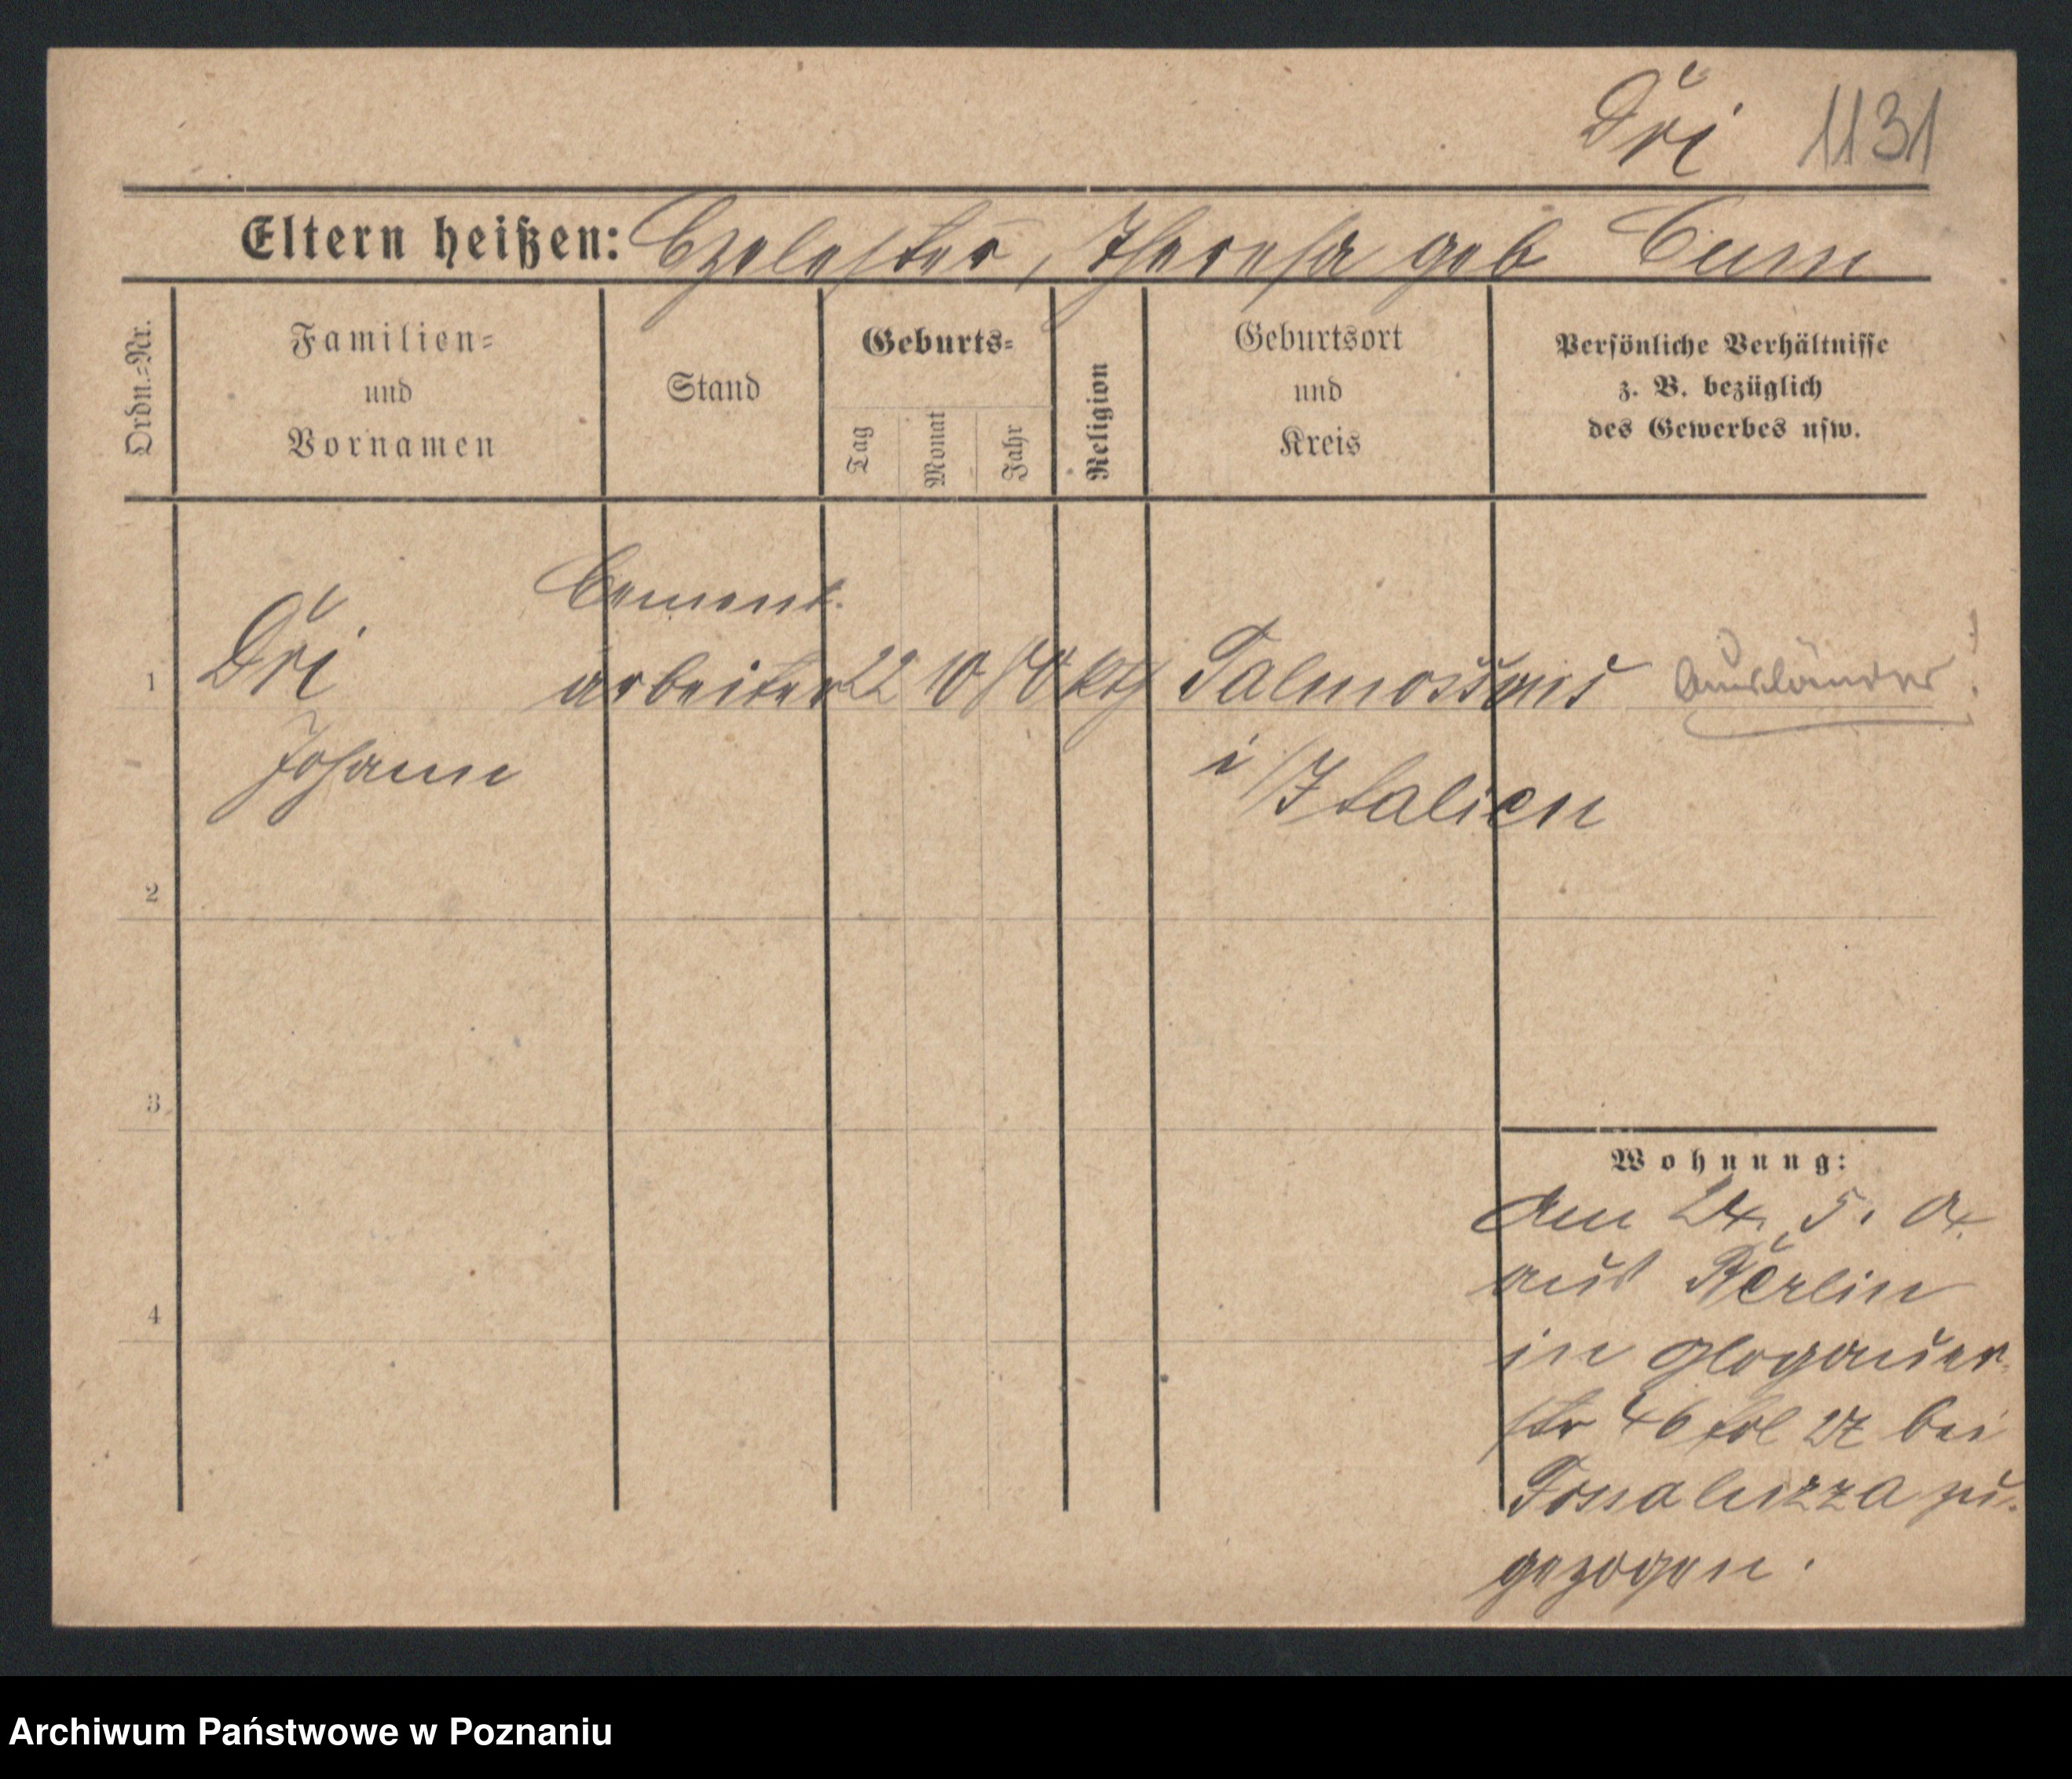 Dri 1131
Eltern heißen: Czelester, Theresa geb Cum
Ordn.=Nr.
Familien=
und
Vornamen
Stand
Geburts=
Tag
Monat
Jahr
Religion
Geburtsort
und
Kreis
Persönliche Verhältnisse
z. B. bezüglich
des Gewerbes usw.
Cement.
1 Dri arbeiter 22 10 kth Ausländer!
Johann i/Italien
2
3
4
Wohnung:
Am 24. 5. 04
aus Berlin
in Glogauer
str 46 bei
zu
gezogen.
Archiwum Państwowe w Poznaniu